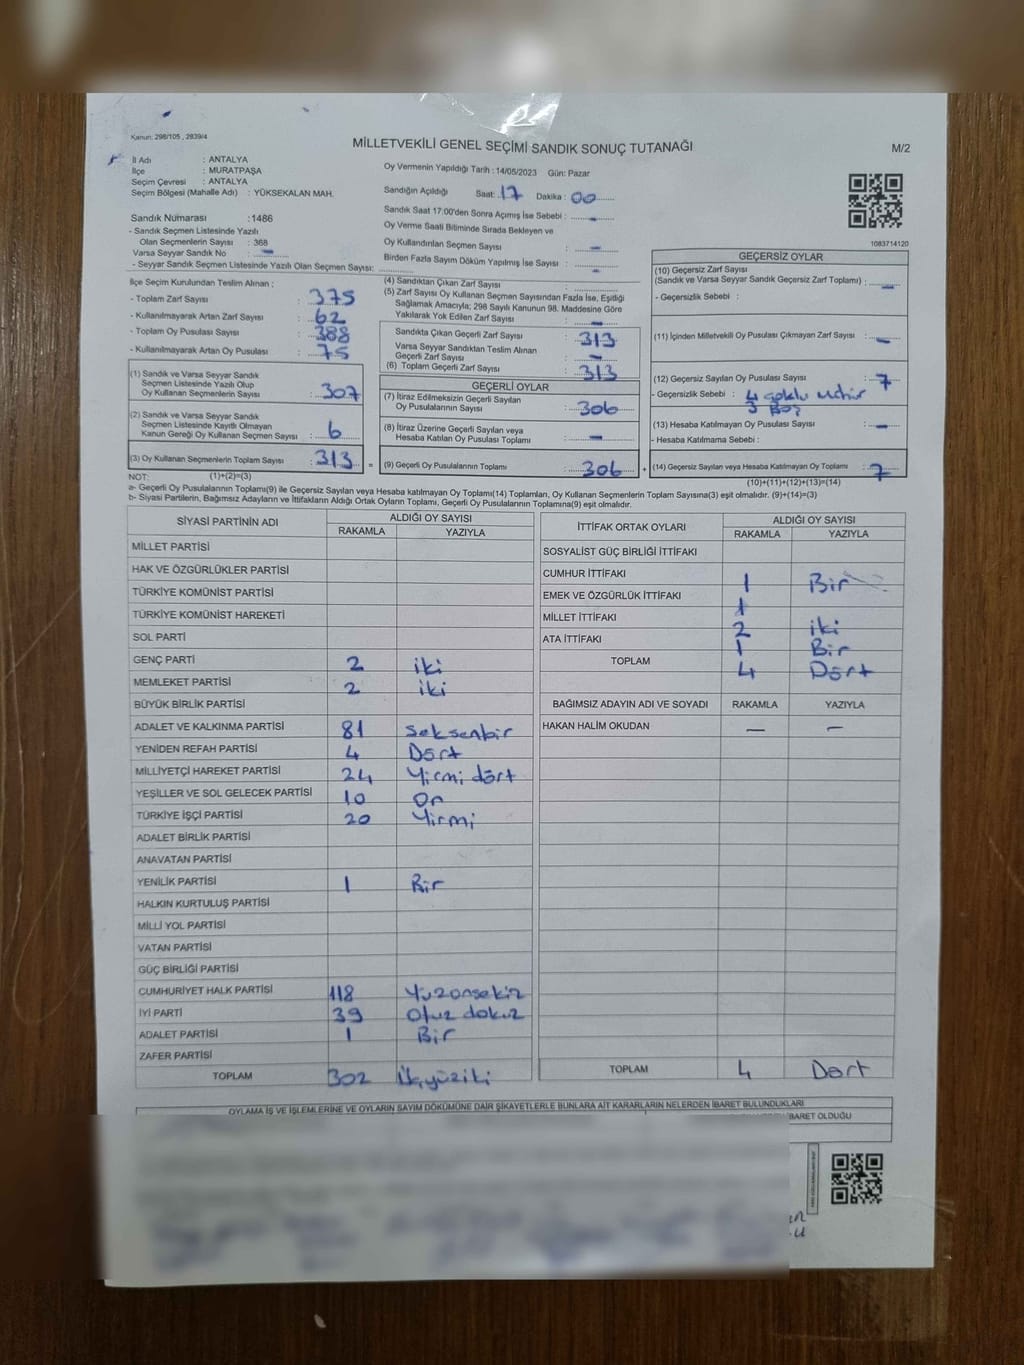 Kanun: 298/105 , 2839/4
MİLLETVEKİLİ GENEL SEÇİMİ SANDIK SONUÇ TUTANAĞI
M/2
İl Adı : ANTALYA
İlçe : MURATPAŞA
Seçim Çevresi : ANTALYA
Seçim Bölgesi (Mahalle Adı) : YÜKSEKALAN MAH.
Sandık Numarası :1486
- Sandık Seçmen Listesinde Yazılı
Olan Seçmenlerin Sayısı : 368
Varsa Seyyar Sandık No : -
- Seyyar Sandık Seçmen Listesinde Yazılı Olan Seçmen Sayısı:
Oy Vermenin Yapıldığı Tarih : 14/05/2023 Gün: Pazar
Sandığın Açıldığı Saat: 17 Dakika : 00
Sandık Saat 17:00'den Sonra Açmış İse Sebebi : -
Oy Verme Saati Bitiminde Sırada Bekleyen ve
Oy Kullandırılan Seçmen Sayısı : -
Birden Fazla Sayım Döküm Yapılmış İse Sayısı : -
1083714120
İlçe Seçim Kurulundan Teslim Alınan ;
- Toplam Zarf Sayısı : 375
- Kullanılmayarak Artan Zarf Sayısı : 62
- Toplam Oy Pusulası Sayısı : 388
- Kullanılmayarak Artan Oy Pusulası : 75
(1) Sandık ve Varsa Seyyar Sandık
Seçmen Listesinde Yazılı Olup
Oy Kullanan Seçmenlerin Sayısı : 307
(2) Sandık ve Varsa Seyyar Sandık
Seçmen Listesinde Kayıtlı Olmayan
Kanun Gereği Oy Kullanan Seçmen Sayısı : 6
(3) Oy Kullanan Seçmenlerin Toplam Sayısı : 313
(1)+(2)=(3)
(4) Sandıktan Çıkan Zarf Sayısı :
(5) Zarf Sayısı Oy Kullanan Seçmen Sayısından Fazla İse, Eşitliği
Sağlamak Amacıyla; 298 Sayılı Kanunun 98. Maddesine Göre
Yakılarak Yok Edilen Zarf Sayısı : -
Sandıkta Çıkan Geçerli Zarf Sayısı : 313
Varsa Seyyar Sandıktan Teslim Alınan
Geçerli Zarf Sayısı : -
(6) Toplam Geçerli Zarf Sayısı : 313
GEÇERLİ OYLAR
(7) İtiraz Edilmeksizin Geçerli Sayılan
Oy Pusulalarının Sayısı : 306
(8) İtiraz Üzerine Geçerli Sayılan veya
Hesaba Katılan Oy Pusulası Toplamı : -
= (9) Geçerli Oy Pusulalarının Toplamı : 306 +
GEÇERSİZ OYLAR
(10) Geçersiz Zarf Sayısı
(Sandık ve Varsa Seyyar Sandık Geçersiz Zarf Toplamı) : -
- Geçersizlik Sebebi :
(11) İçinden Milletvekili Oy Pusulası Çıkmayan Zarf Sayısı : -
(12) Geçersiz Sayılan Oy Pusulası Sayısı : 7
- Geçersizlik Sebebi : 4 çoklu mühür
3 Boş
(13) Hesaba Katılmayan Oy Pusulası Sayısı : -
- Hesaba Katılmama Sebebi :
(14) Geçersiz Sayılan veya Hesaba Katılmayan Oy Toplamı : 7
(10)+(11)+(12)+(13)=(14)
NOT:
a- Geçerli Oy Pusulalarının Toplamı(9) ile Geçersiz Sayılan veya Hesaba katılmayan Oy Toplamı(14) Toplamları, Oy Kullanan Seçmenlerin Toplam Sayısına(3) eşit olmalıdır. (9)+(14)=(3)
b- Siyasi Partilerin, Bağımsız Adayların ve İttifakların Aldığı Ortak Oyların Toplamı, Geçerli Oy Pusulalarının Toplamına(9) eşit olmalıdır.
SİYASİ PARTİNİN ADI ALDIĞI OY SAYISI
RAKAMLA YAZIYLA
MİLLET PARTİSİ
HAK VE ÖZGÜRLÜKLER PARTİSİ
TÜRKİYE KOMÜNİST PARTİSİ
TÜRKİYE KOMÜNİST HAREKETİ
SOL PARTİ
GENÇ PARTİ 2 iki
MEMLEKET PARTİSİ 2 iki
BÜYÜK BİRLİK PARTİSİ
ADALET VE KALKINMA PARTİSİ 81 seksenbir
YENİDEN REFAH PARTİSİ 4 Dört
MİLLİYETÇİ HAREKET PARTİSİ 24 Yirmi dört
YEŞİLLER VE SOL GELECEK PARTİSİ 10 On
TÜRKİYE İŞÇİ PARTİSİ 20 Yirmi
ADALET BİRLİK PARTİSİ
ANAVATAN PARTİSİ
YENİLİK PARTİSİ 1 Bir
HALKIN KURTULUŞ PARTİSİ
MİLLİ YOL PARTİSİ
VATAN PARTİSİ
GÜÇ BİRLİĞİ PARTİSİ
CUMHURİYET HALK PARTİSİ 118 Yüzonsekiz
İYİ PARTİ 39 Otuz dokuz
ADALET PARTİSİ 1 Bir
ZAFER PARTİSİ
TOPLAM 302 Üçyüziki
İTTİFAK ORTAK OYLARI ALDIĞI OY SAYISI
RAKAMLA YAZIYLA
SOSYALİST GÜÇ BİRLİĞİ İTTİFAKI
CUMHUR İTTİFAKI 1 Bir
EMEK VE ÖZGÜRLÜK İTTİFAKI 1
MİLLET İTTİFAKI 2 iki
ATA İTTİFAKI 1 Bir
TOPLAM 4 Dört
BAĞIMSIZ ADAYIN ADI VE SOYADI RAKAMLA YAZIYLA
HAKAN HALİM OKUDAN - -
TOPLAM 4 Dört
OYLAMA İŞ VE İŞLEMLERİNE VE OYLARIN SAYIM DÖKÜMÜNE DAİR ŞİKAYETLERLE BUNLARA AİT KARARLARIN NELERDEN İBARET BULUNDUKLARI
İBARET OLDUĞU